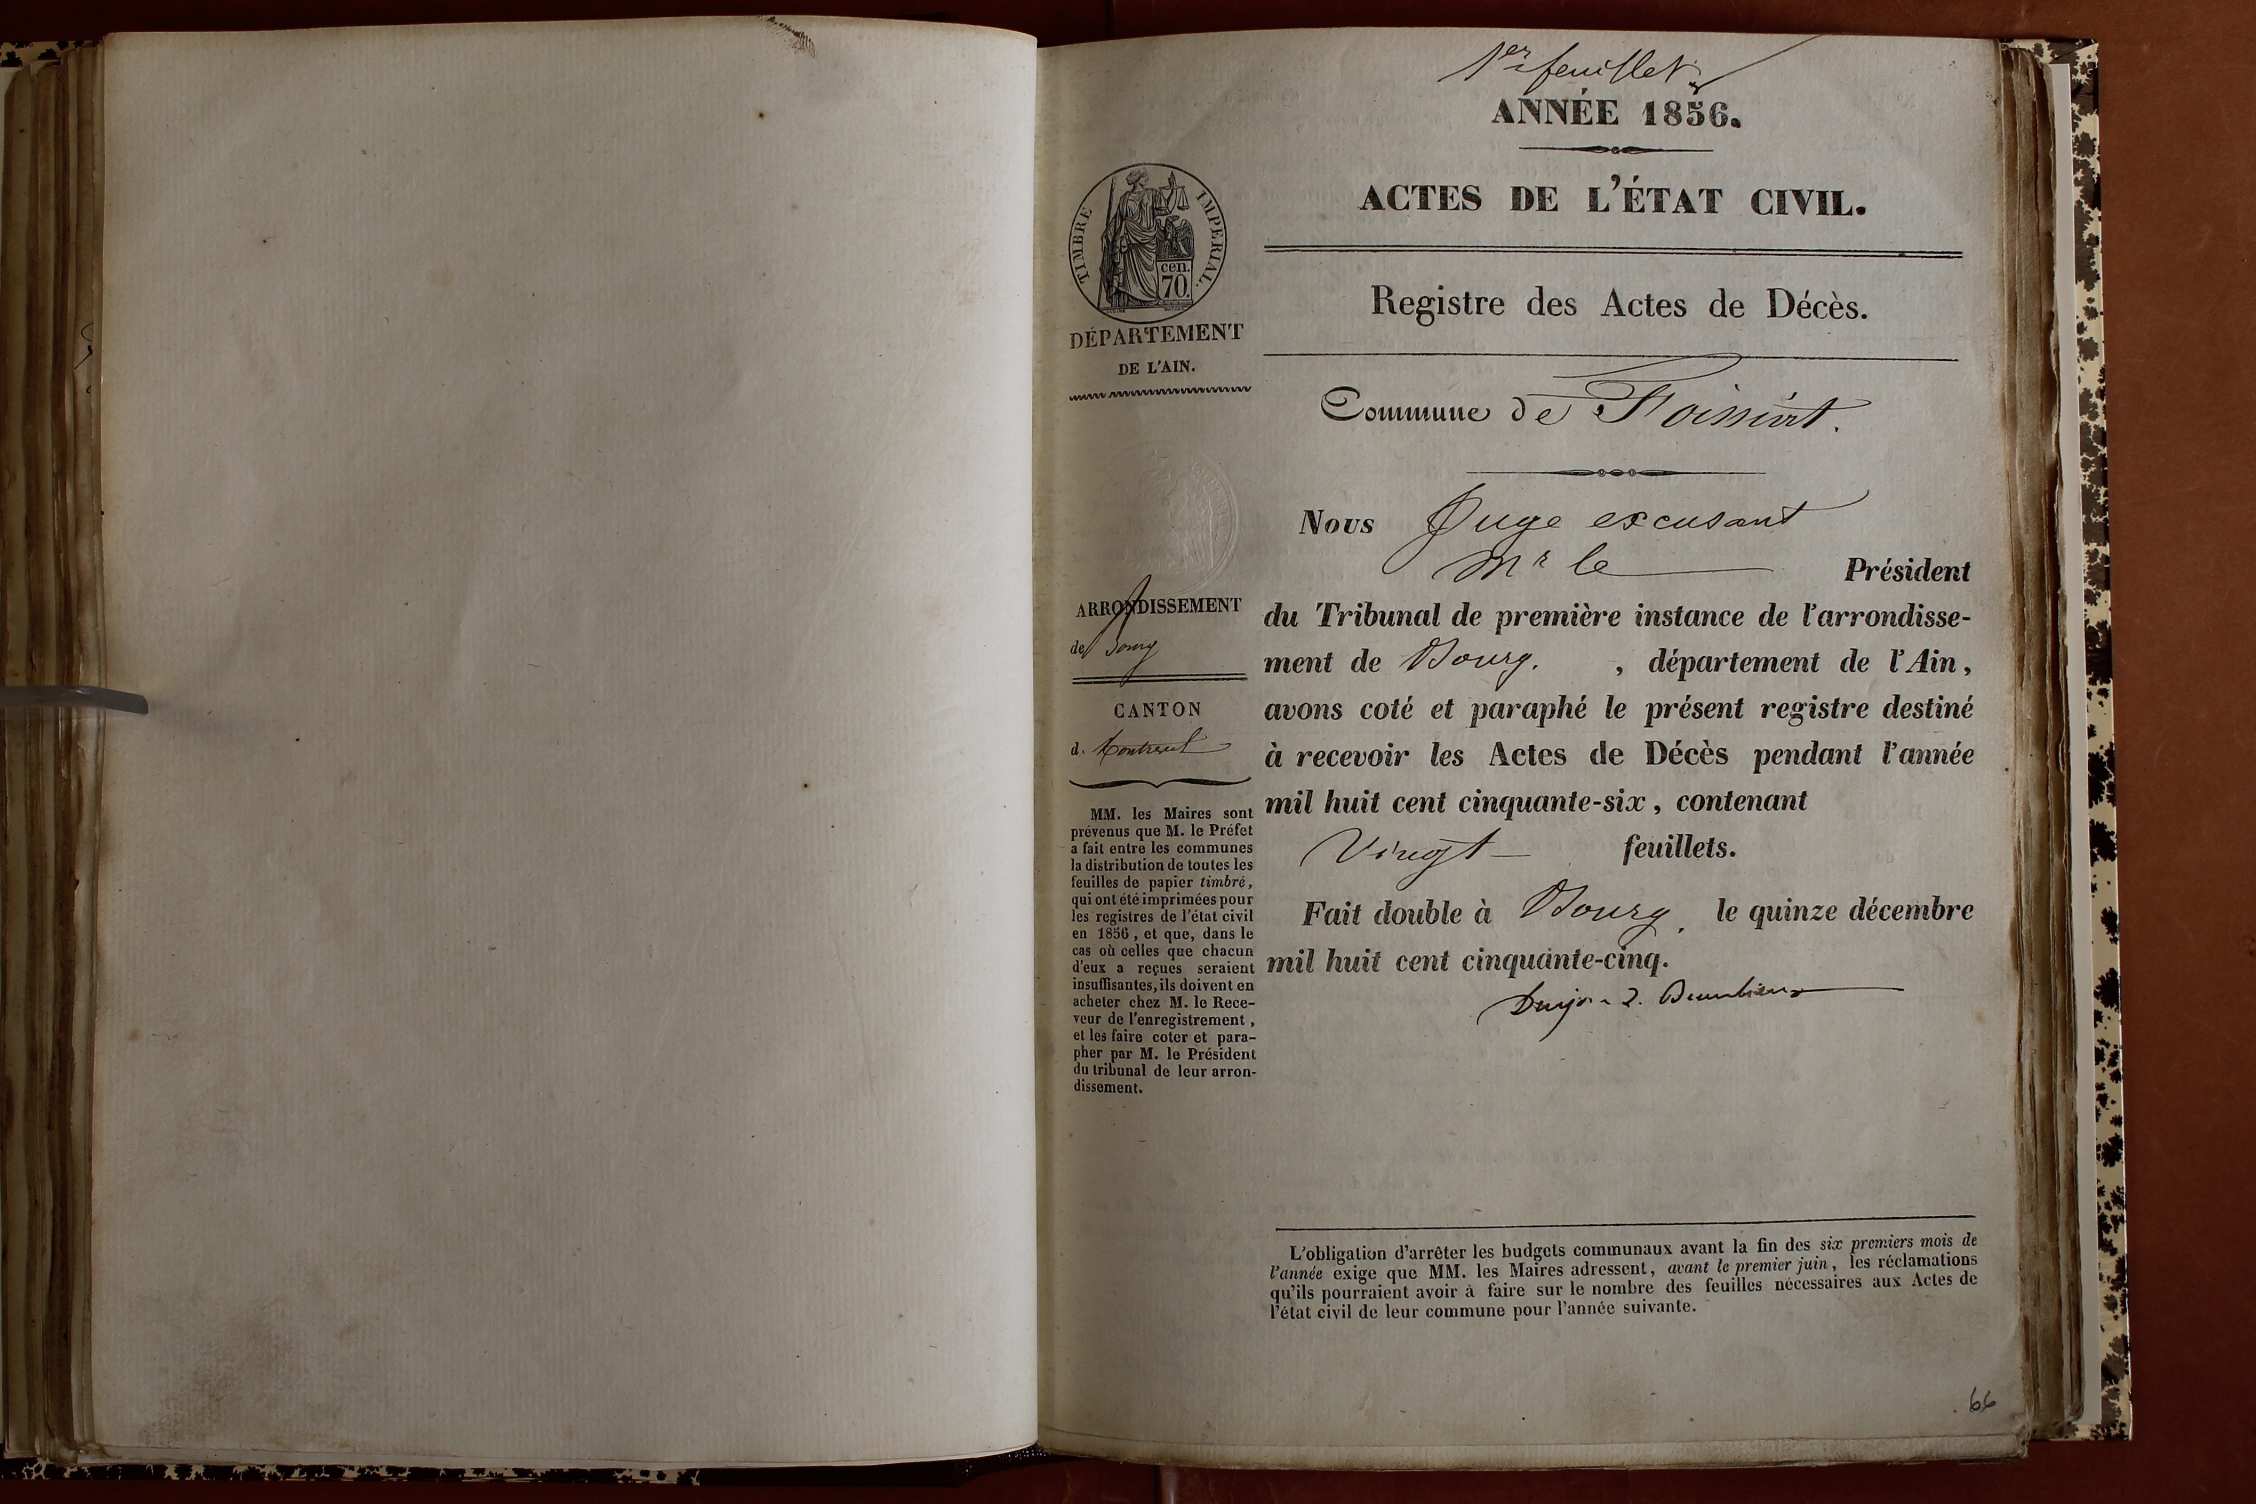 1er feuillet
ANNÉE 1856.
ACTES DE L'ÉTAT CIVIL.
TIMBRE IMPERIAL.
cen.
70.
DÉPARTEMENT
DE L'AIN.
Registre des Actes de Décès.
Commune de Foissiat.
Nous Juge excusant
Mr le Président
du Tribunal de première instance de l'arrondisse-
ment de Bourg. , département de l'Ain,
avons coté et paraphé le présent registre destiné
à recevoir les Actes de Décès pendant l'année
mil huit cent cinquante-six, contenant
Vingt feuillets.
Fait double à Bourg, le quinze décembre
mil huit cent cinquante-cinq.
ARRONDISSEMENT
de Bourg
CANTON
d. Montrevel
MM. les Maires sont
prévenus que M. le Préfet
a fait entre les communes
la distribution de toutes les
feuilles de papier timbré,
qui ont été imprimées pour
les registres de l'état civil
en 1856, et que, dans le
cas où celles que chacun
d'eux a reçues seraient
insuffisantes, ils doivent en
acheter chez M. le Rece-
veur de l'enregistrement,
et les faire coter et para-
pher par M. le Président
du tribunal de leur arron-
dissement.
L'obligation d'arrêter les budgets communaux avant la fin des six premiers mois de
l'année exige que MM. les Maires adressent, avant le premier juin, les réclamations
qu'ils pourraient avoir à faire sur le nombre des feuilles nécessaires aux Actes de
l'état civil de leur commune pour l'année suivante.
66